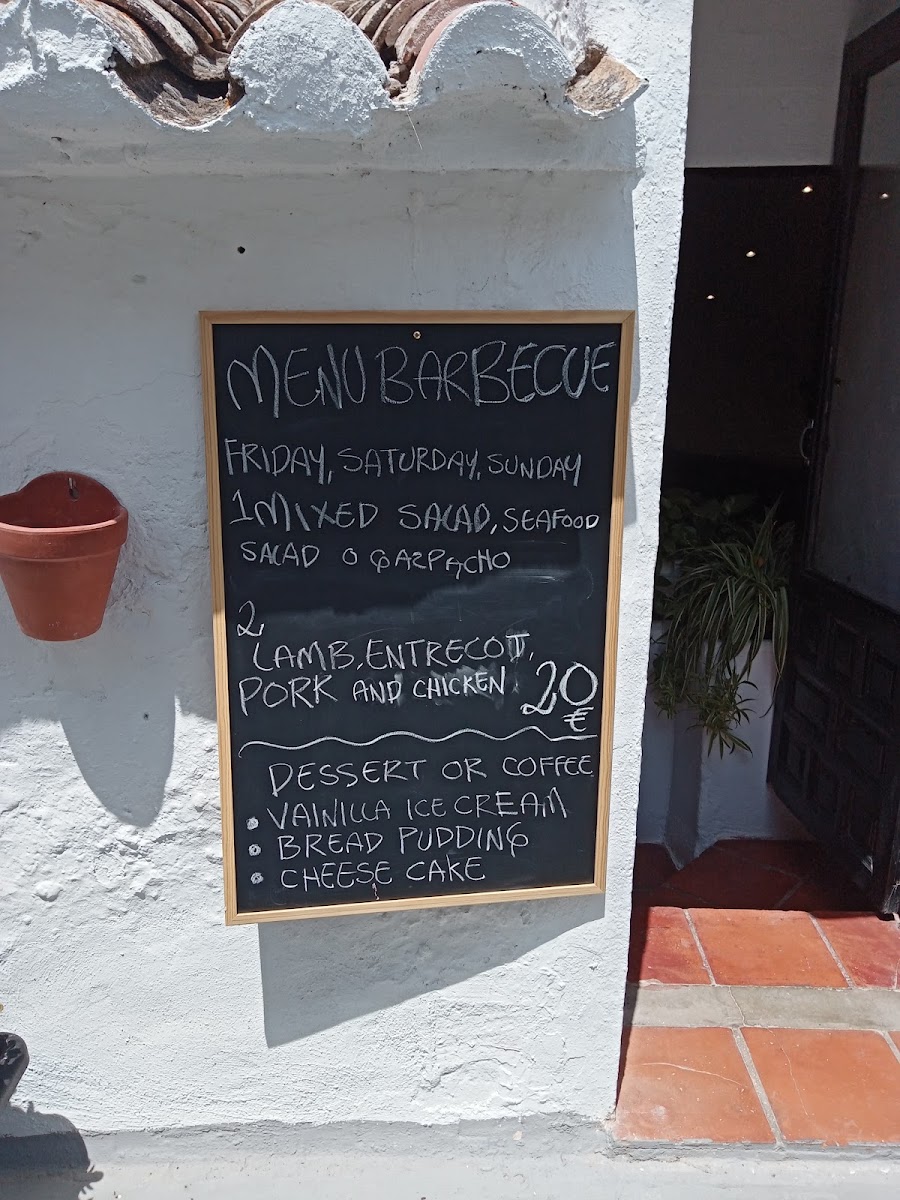 MENU BARBECUE
FRIDAY, SATURDAY, SUNDAY
1 MIXED SALAD, SEAFOOD
SALAD O GAZPACHO
2
LAMB, ENTRECOTT,
PORK AND CHICKEN. 20
€
DESSERT OR COFFEE
• VAINILLA ICE CREAM
• BREAD PUDDING
• CHEESE CAKE